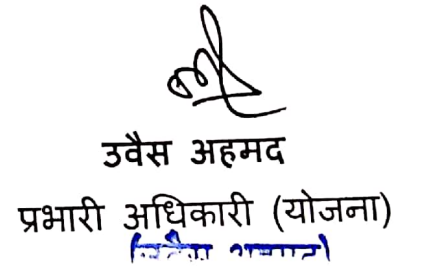 उवैस अहमद
प्रभारी अधिकारी (योजना)